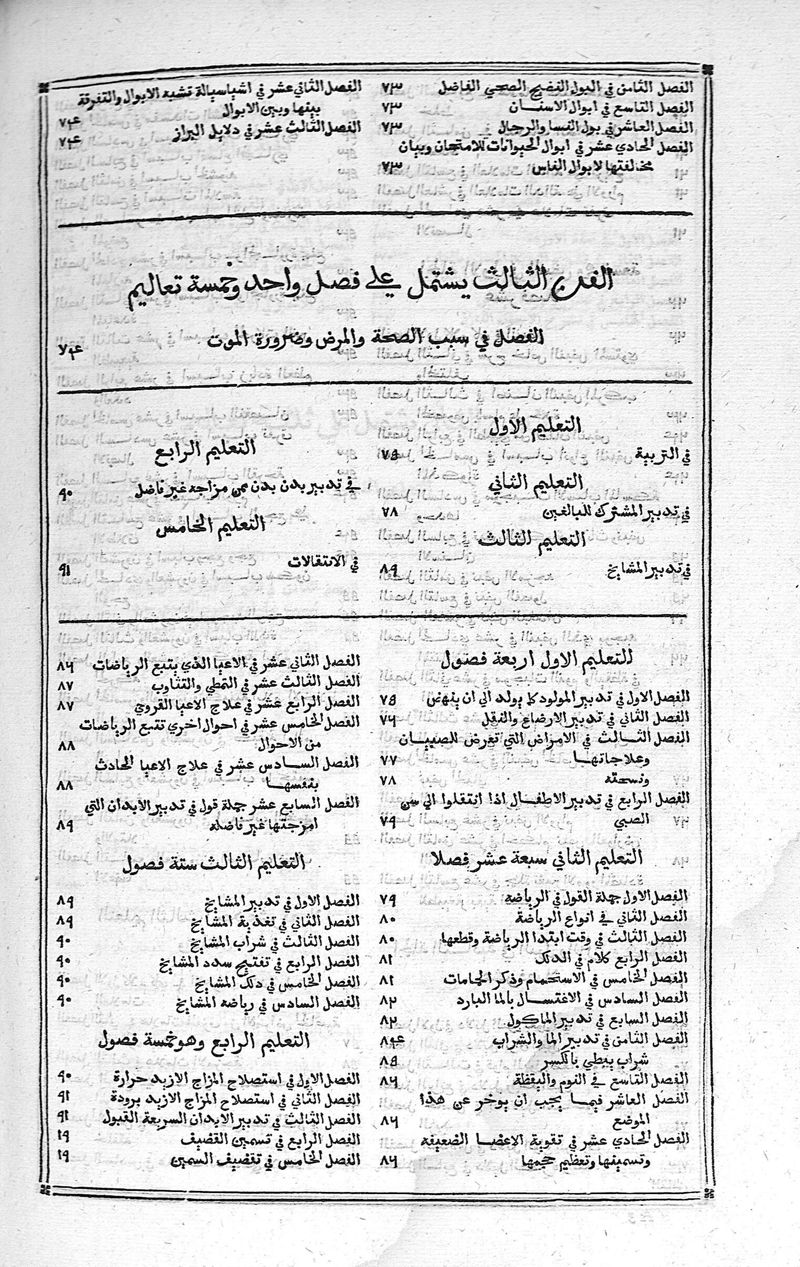 الفصل الثامن في البول النضيج الصحي الفاضل ٧٣
الفصل التاسع في ابوال الاسنان ٧٣
الفصل العاشر في بول النسا والرجال ٧٣
الفصل الحادي عشر في ابوال الحيوانات للامتحان وبيان
مخالفتها لابوال الناس ٧٣
الفصل الثاني عشر في اشيا سيالة تشبه الابوال والتفرقة
بينها وبين الابوال ٧٤
الفصل الثالث عشر في دلايل البراز ٧٤
الفن الثالث يشتمل على فصل واحد وخمسة تعاليم
الفصل في سبب الصحة والمرض وضرورة الموت ٧٤
التعليم الاول
في التربية ٧٥
التعليم الثاني
في تدبير المشترك للبالغين ٧٨
التعليم الثالث
في تدبير المشايخ ٨٩
التعليم الرابع
في تدبير بدن بدن ممن مزاجه غير فاضل ٩٠
التعليم الخامس
في الانتقالات ٩١
التعليم الاول اربعة فصول
الفصل الاول في تدبير المولود كما يولد الى ان ينهض ٧٥
الفصل الثاني في تدبير الارضاع والنقل ٧٦
الفصل الثالث في الامراض التي تعرض للصبيان
وعلاجاتها ٧٧
ونسخته ٧٨
الفصل الرابع في تدبير الاطفال اذا انتقلوا الى سن
الصبي ٧٩
التعليم الثاني سبعة عشر فصلا
الفصل الاول جملة القول في الرياضة ٧٩
الفصل الثاني في انواع الرياضة ٨٠
الفصل الثالث في وقت ابتدا الرياضة وقطعها ٨٠
الفصل الرابع كلام في الدلك ٨١
الفصل الخامس في الاستحمام وذكر الحمامات ٨١
الفصل السادس في الاغتسال بالما البارد ٨٢
الفصل السابع في تدبير الماكول ٨٢
الفصل الثامن في تدبير الما والشراب ٨٤
شراب يبطي بالسكر ٨٥
الفصل التاسع في النوم واليقظة ٨٦
الفصل العاشر فيما يجب ان يوخر عن هذا
الموضع ٨٦
الفصل الحادي عشر في تقوية الاعضا الضعيفة
وتسمينها وتعظيم حجمها ٨٦
الفصل الثاني عشر في الاعيا الذي يتبع الرياضات ٨٦
الفصل الثالث عشر في التمطي والتثاوب ٨٧
الفصل الرابع عشر في علاج الاعيا القروي ٨٧
الفصل الخامس عشر في احوال اخري تتبع الرياضات
من الاحوال ٨٨
الفصل السادس عشر في علاج الاعيا الحادث
بنفسها ٨٨
الفصل السابع عشر جملة قول في تدبير الابدان التي
امزجتها غير فاضله ٨٩
التعليم الثالث ستة فصول
الفصل الاول في تدبير المشايخ ٨٩
الفصل الثاني في تغذية المشايخ ٨٩
الفصل الثالث في شراب المشايخ ٩٠
الفصل الرابع في تفتيح سدد المشايخ ٩٠
الفصل الخامس في دلك المشايخ ٩٠
الفصل السادس في رياضه المشايخ ٩٠
التعليم الرابع وهو خمسة فصول
الفصل الاول في استصلاح المزاج الازيد حرارة ٩٠
الفصل الثاني في استصلاح المزاج الازيد برودة ٩١
الفصل الثالث في تدبير الابدان السريعة القبول ٩١
الفصل الرابع في تسمين القضيف ١٩
الفصل الخامس في تقضيف السمين ١٩